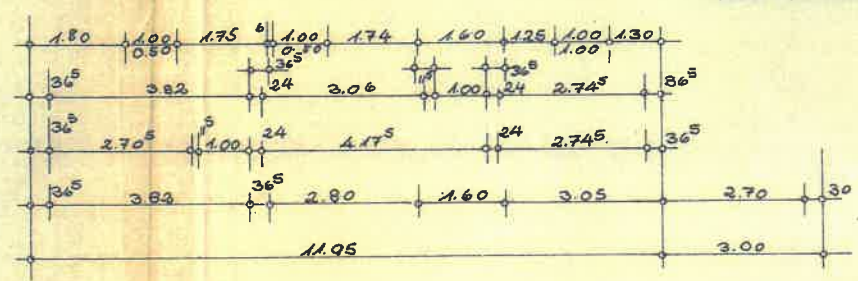 1.80 1.00 1.75 6 1.00 1.74 1.60 1.25 1.00 1.30
0.50 0.80 1.00
36⁵ 36⁵
36⁵ 3.82 24 3.06 11⁵ 1.00 24 2.74⁵ 36⁵
36⁵ 2.70⁵ 11⁵ 1.00 24 4.17⁵ 24 2.74⁵ 36⁵
36⁵ 3.82 36⁵ 2.80 1.60 3.05 2.70 30
11.95 3.00